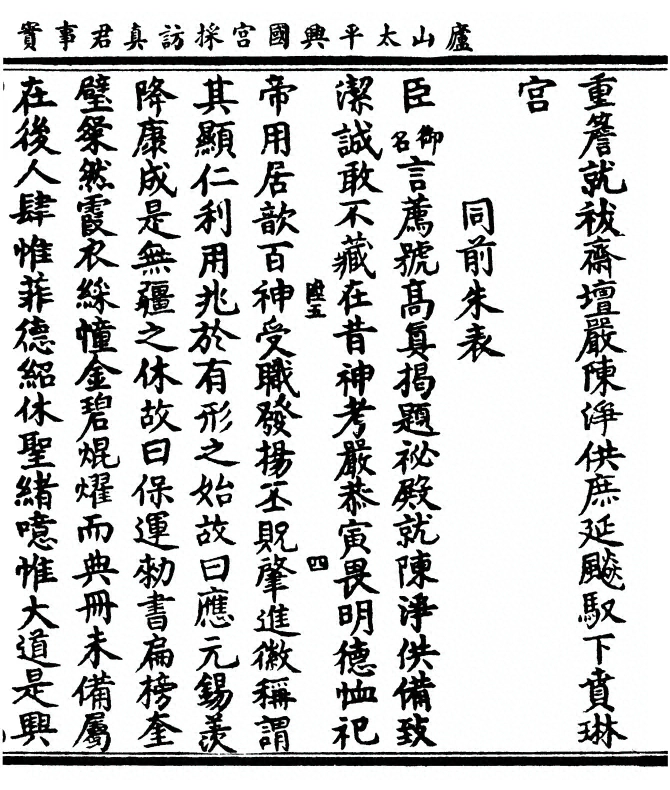 廬山太平興國宮採訪真君事實
重簷就祓齋壇嚴陳淨供庶延飈馭下賁琳
宮
同前朱表
臣御名言薦號髙真揭題祕殿就陳淨供備致
潔誠敢不藏在昔神考嚴恭寅畏明德恤祀
陞五 四
帝用居歆百神受職發揚丕貺肇進徽稱謂
其顯仁利用兆於有形之始故曰應元錫羨
降康成是無疆之休故曰保運勅書扁榜奎
璧粲然霞衣綵幢金碧焜燿而典冊未備屬
在後人肆惟菲德紹休聖緒噫惟大道是興